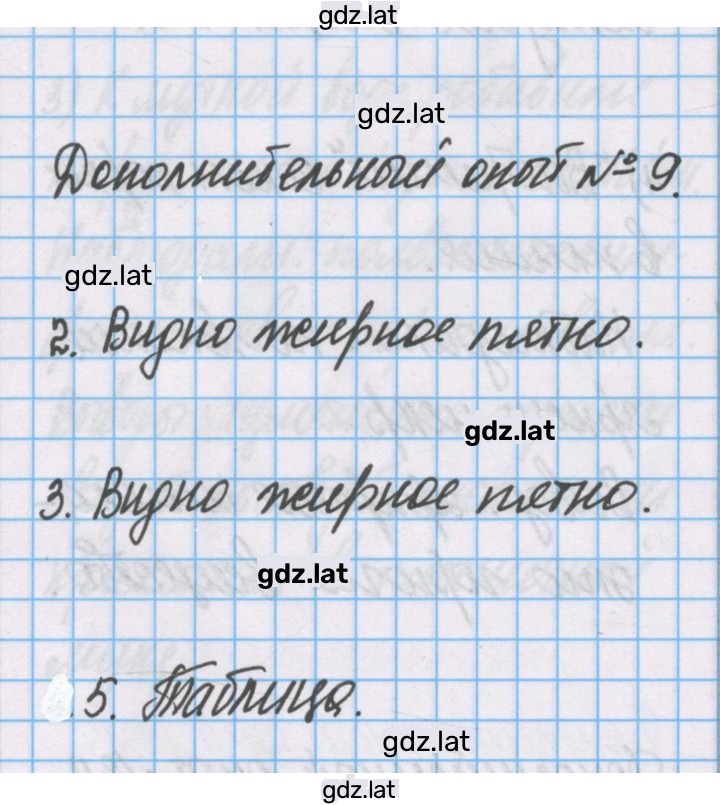 gdz.lat
gdz.lat
Дополнительный опыт № 9.
gdz.lat
2. Видно жирное пятно.
gdz.lat
3. Видно жирное пятно.
gdz.lat
5. Таблица.
gdz.lat
gdz.lat